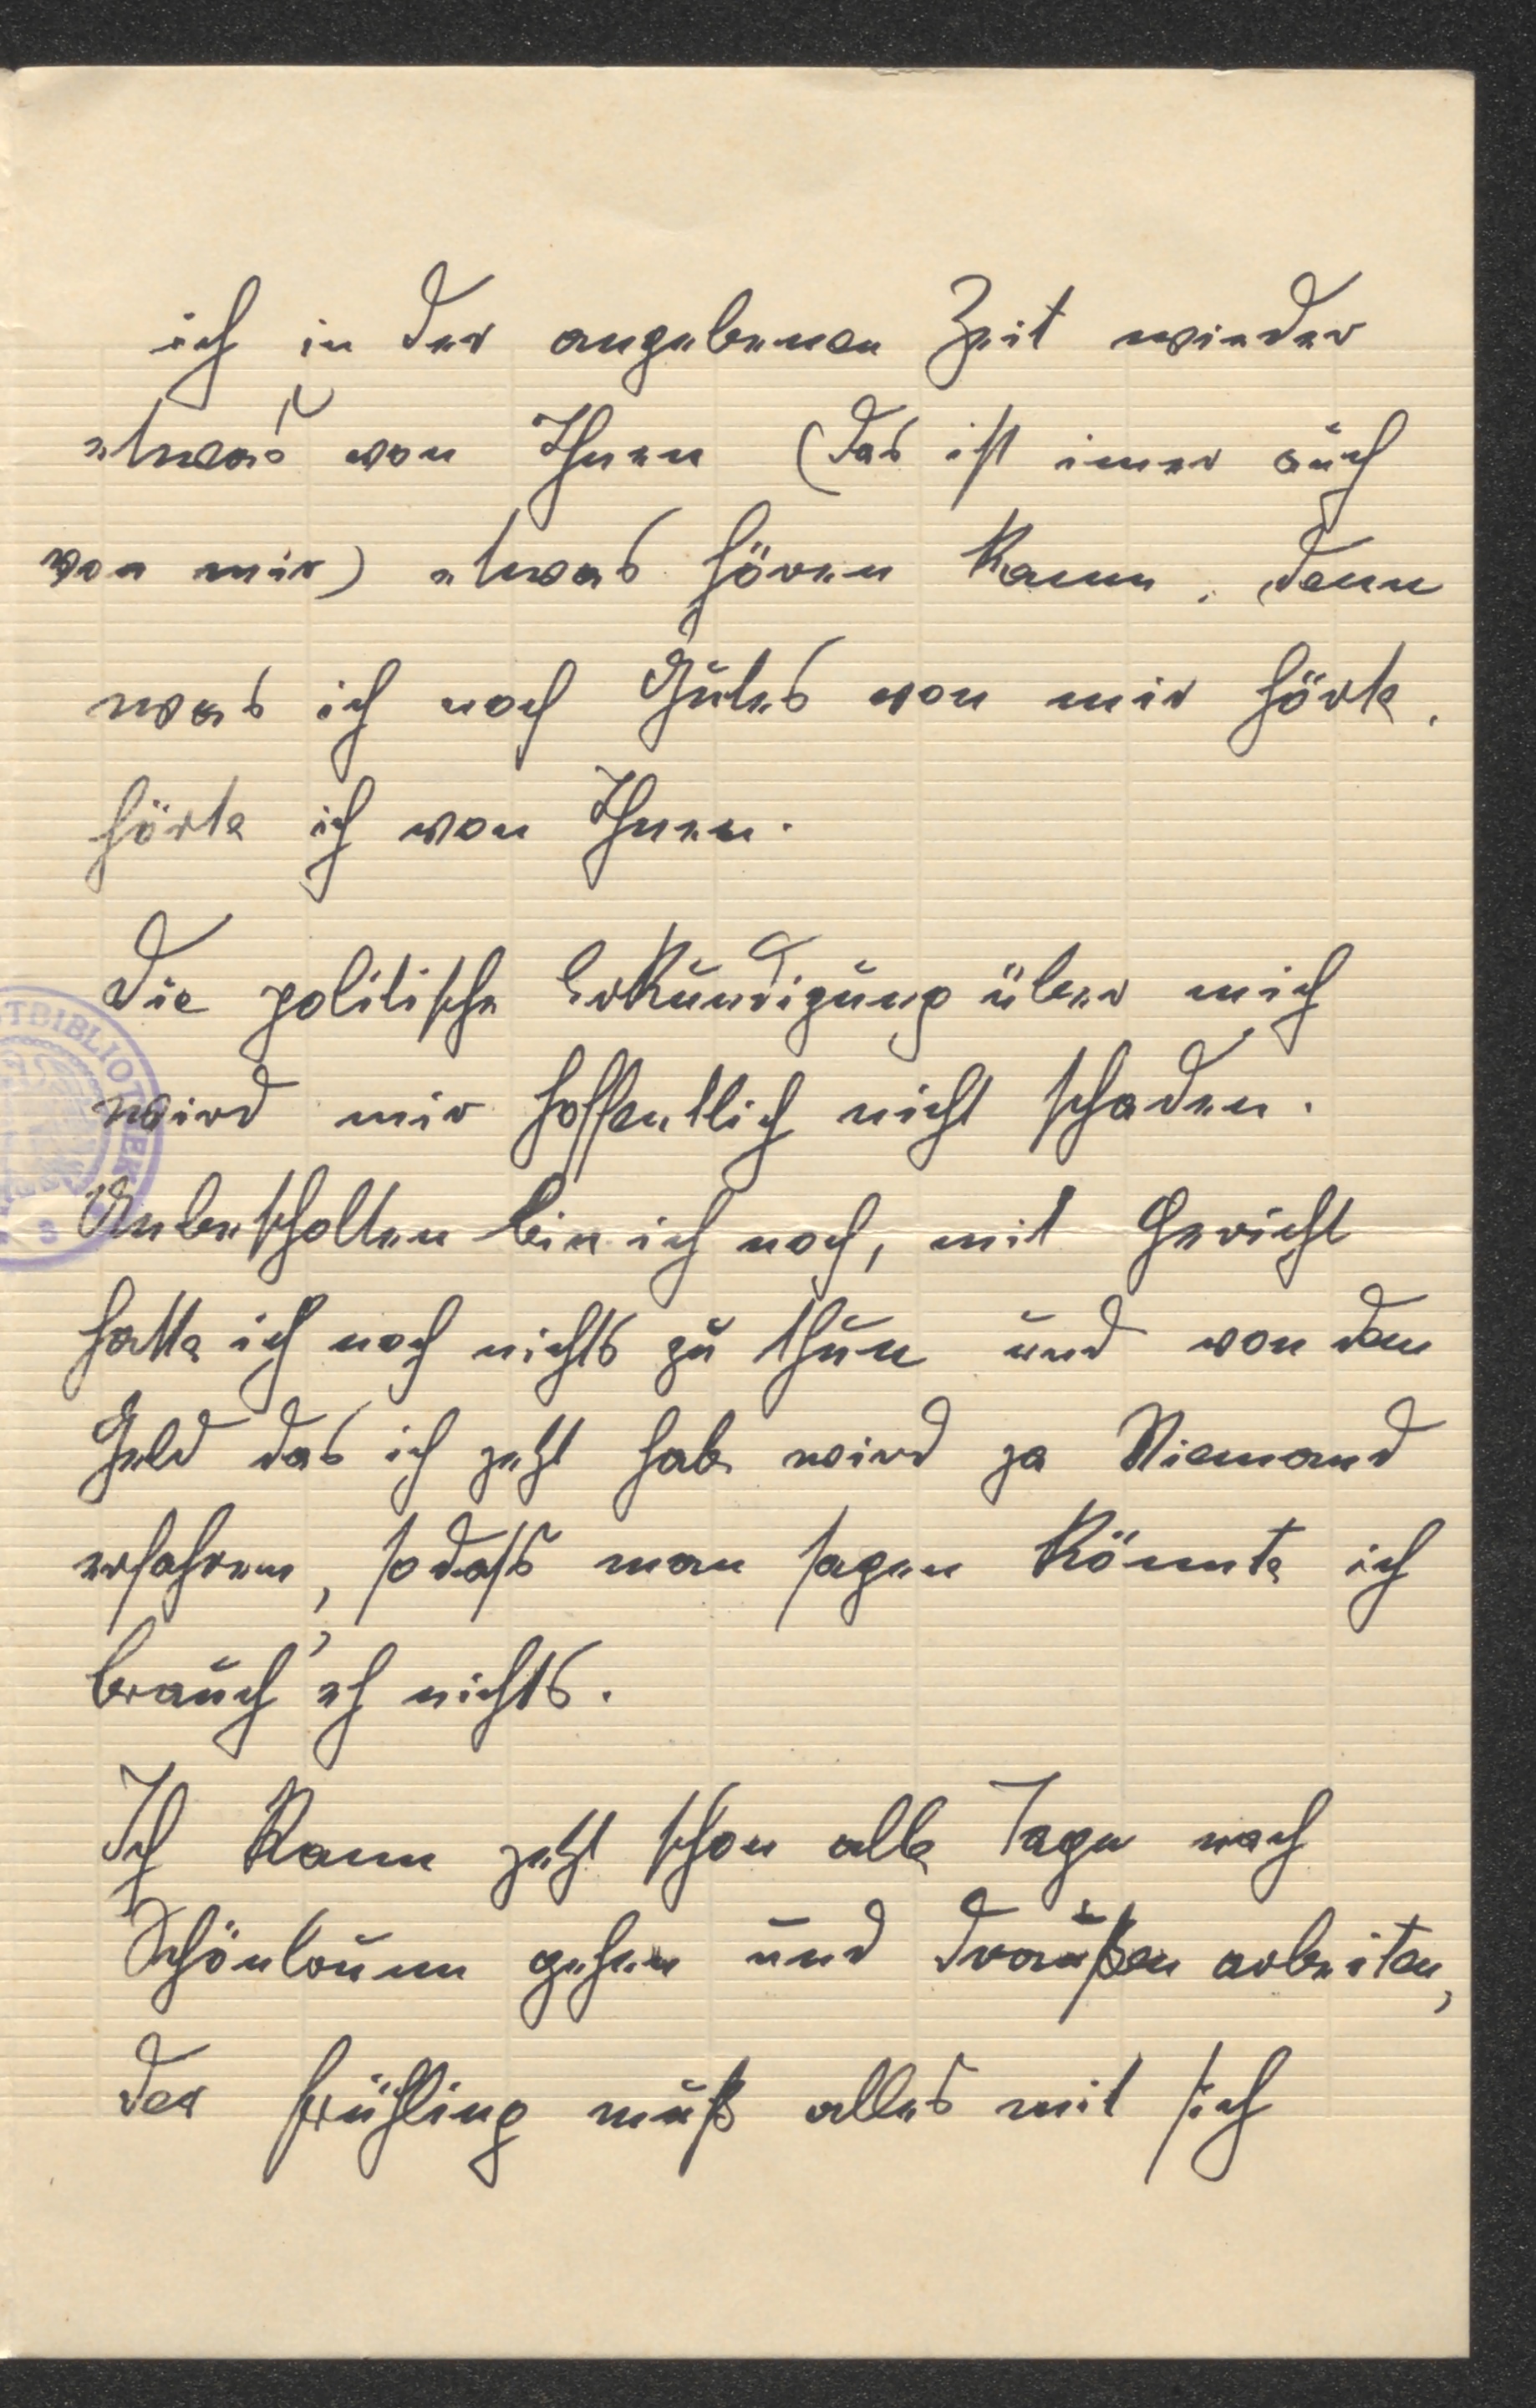 ich in der angebenen Zeit wieder
etwas von Ihnen (das ist imer auch
von mir) etwas hören kann, denn
was ich noch Gutes von mir hörte,
hörte ich von Ihnen.
Die politische Erkundigung über mich
wird mir hoffentlich nicht schaden.
Unbescholten bin ich noch, mit Gericht
hatte ich noch nichts zu thun und von dem
Geld das ich jetzt hab wird ja Niemand
erfahren, sodass man sagen könnte ich
brauch' eh nichts.
Ich kann jetzt schon alle Tage nach
Schönbrunn gehen und draußen arbeiten,
der Frühling muß alles mit sich
TBIBLIOTHEK
S